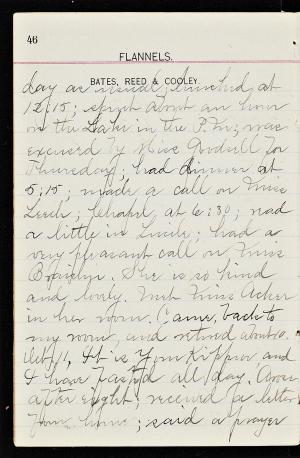 46
FLANNELS.
BATES, REED & COOLEY.
day as usual; lunched at
12:15; spent about an hour
on the Lake in the P.M.; was
excused by Miss Goodsell for
Thursday; had dinner at
5:15; made a call on Miss
Leech; Chapel, at 6:30; read
a little in Lucile; had a
very pleasant call on Miss
She is so kind
and lovely. Met Miss Acker
in her room. Came back to
my room, and retired about 10.
Oct. 11, It is Yom Kippur, and
I have fasted all day. Arose
after eight; received a letter
from home; said a prayer